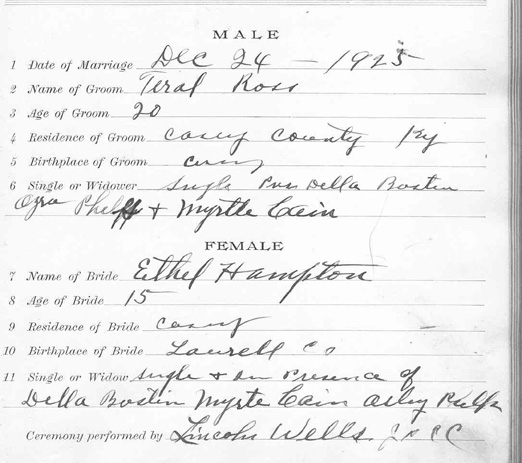 MALE
1 Date of Marriage Dec 24 - 1925
2 Name of Groom Teral Ross
3 Age of Groom 20
4 Residence of Groom Casey County Ky
5 Birthplace of Groom Casey
6 Single or Widower Single Pres Della Bostin
Ozra Phelps + Myrtle Cain
FEMALE
7 Name of Bride Ethel Hampton
8 Age of Bride 15
9 Residence of Bride Casey
10 Birthplace of Bride Laurell Co
11 Single or Widow Single + in Presence of
Della Bostin Myrte Cain Phelps
Ceremony performed by Lincoln Wells J P C C